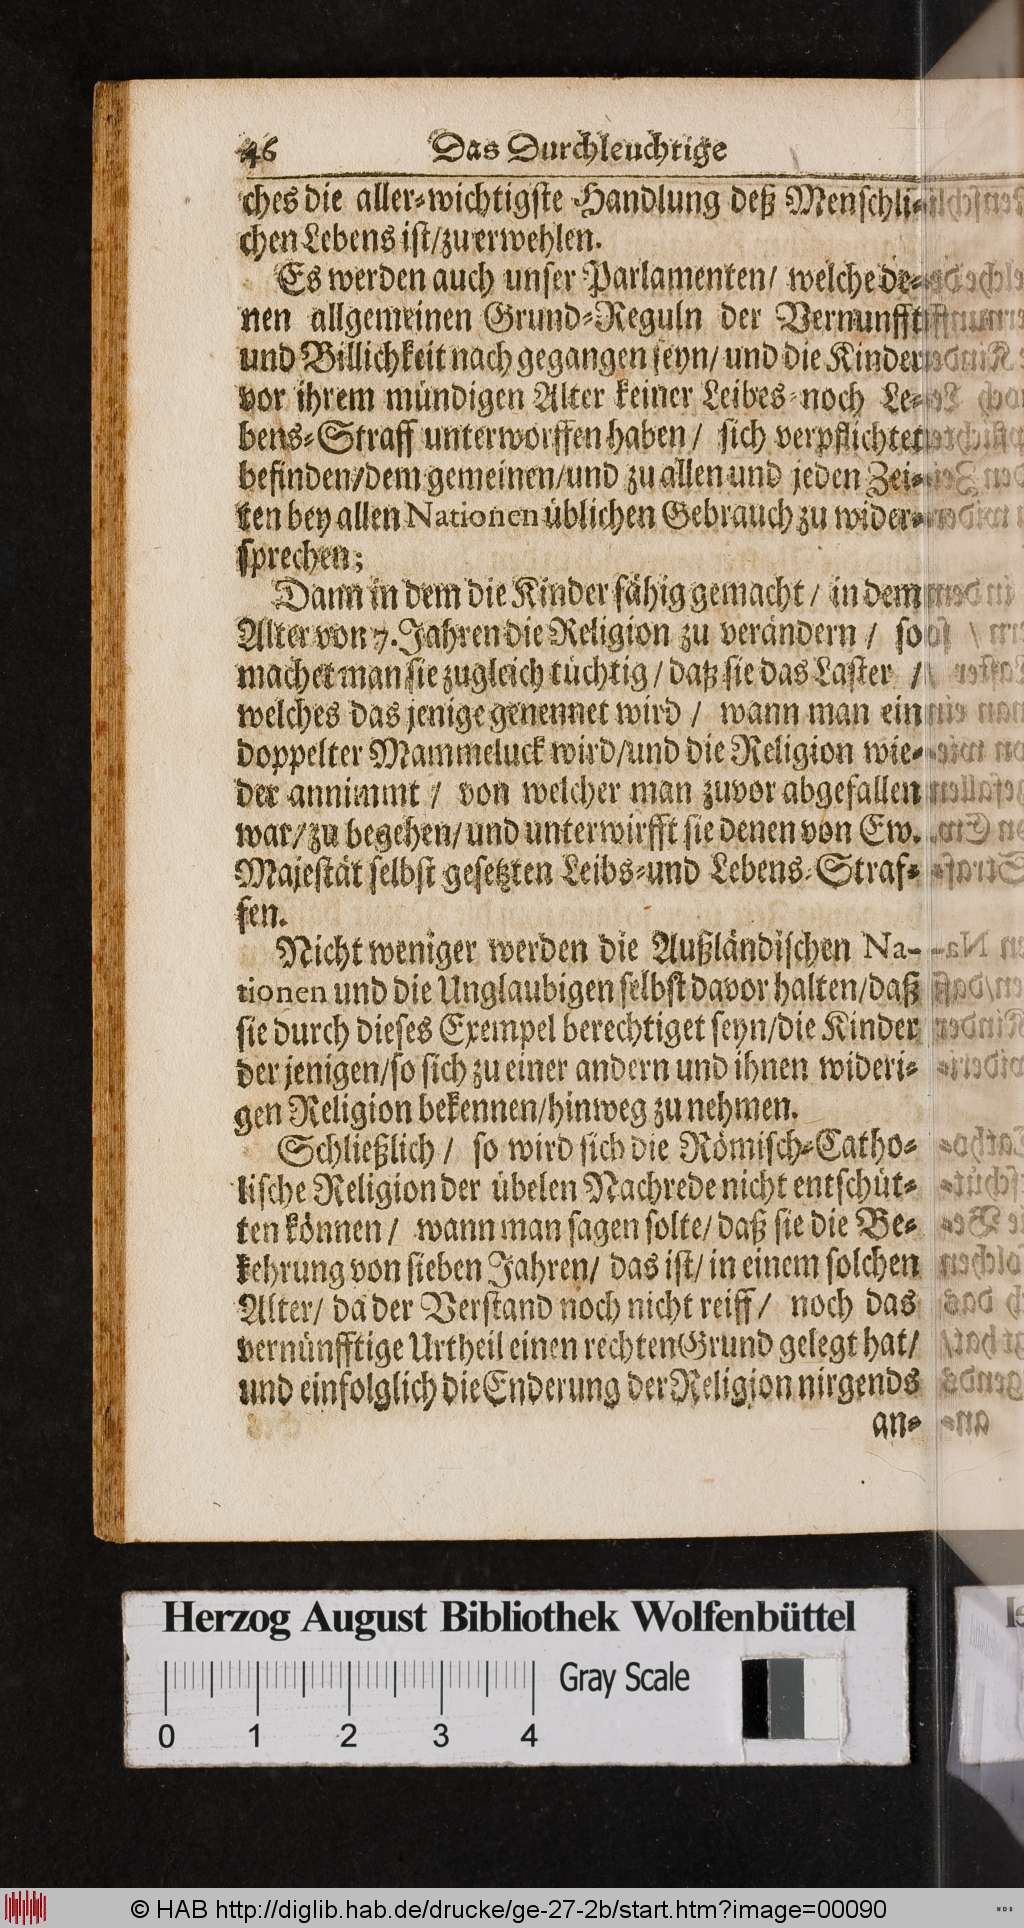 46 Das Durchleuchtige
ches die aller-wichtigste Handlung deß Menschli-
chen Lebens ist/zu erwehlen.
Es werden auch unser Parlamenten/ welche de-
nen allgemeinen Grund-Reguln der Vernunfft
und Billichkeit nach gegangen seyn/ und die Kinder
vor ihrem mündigen Alter keiner Leibes-noch Le-
bens-Straff unterworffen haben/ sich verpflichtet
befinden/dem gemeinen/und zu allen und jeden Zei-
ten bey allen Nationen üblichen Gebrauch zu wider-
sprechen;
Dann in dem die Kinder fähig gemacht / in dem
Alter von 7. Jahren die Religion zu verändern / so
machet man sie zugleich tüchtig / daß sie das Laster /
welches das jenige genennet wird / wann man ein
doppelter Mammeluck wird/und die Religion wie-
der annimmt / von welcher man zuvor abgefallen
war/zu begehen/und unterwirfft sie denen von Ew.
Majestät selbst gesetzten Leibs-und Lebens-Straf-
fen.
Nicht weniger werden die Außländischen Na-
tionen und die Unglaubigen selbst davor halten/daß
sie durch dieses Exempel berechtiget seyn/die Kinder
der jenigen/so sich zu einer andern und ihnen wideri-
gen Religion bekennen/hinweg zu nehmen.
Schließlich / so wird sich die Römisch-Catho-
lische Religion der übelen Nachrede nicht entschüt-
ten können / wann man sagen solte/ daß sie die Be-
kehrung von sieben Jahren/ das ist/ in einem solchen
Alter/ da der Verstand noch nicht reiff / noch das
vernünfftige Urtheil einen rechten Grund gelegt hat/
und einfolglich die Enderung der Religion nirgends
an-
Herzog August Bibliothek Wolfenbüttel
Gray Scale
0 1 2 3 4
© HAB http://diglib.hab.de/drucke/ge-27-2b/start.htm?image=00090